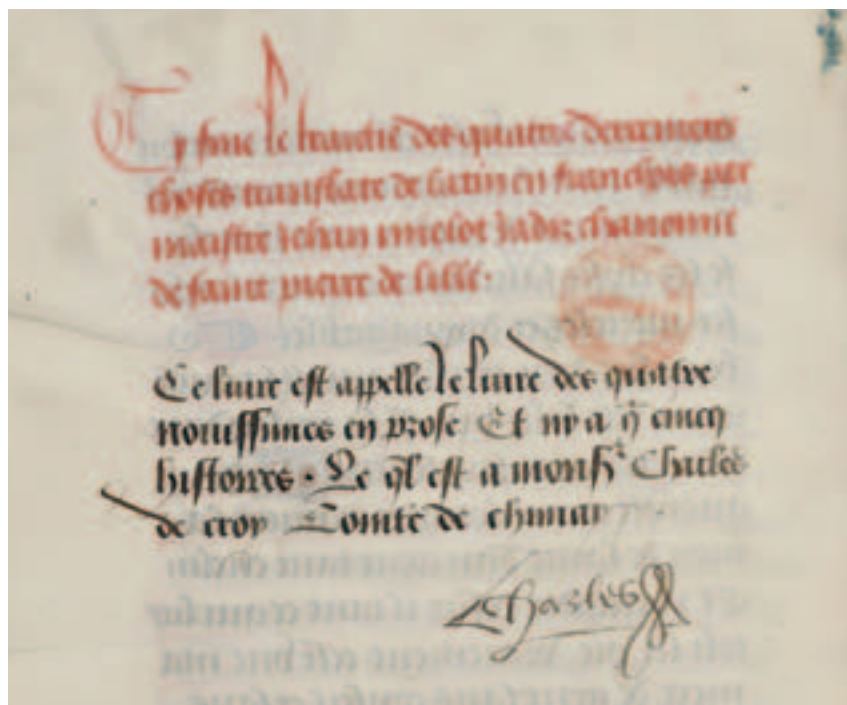 Cy fine le traitie des quattre derrenieres
choses translate de latin en franchois par
maistre Jehan mielot Jadis chanonne
de saint pierre de lille.
Ce liure est appelle le liure des quattre
nouissimes en prose Et ny a q̄ cincq
histoires. Le q̄l est a monsr Charles
de croy Comte de chimay
Charles